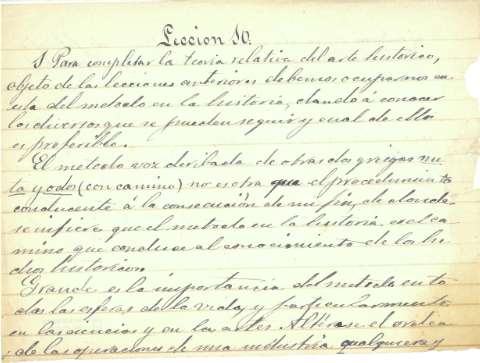 Leccion 10.
§ Para completar la teoria relativa del arte historico,
objeto de las lecciones anteriores debemos ocuparnos en
esta del metodo en la historia, dando á conocer
los diversos que se pueden seguir y cual de ellos
es preferible.
El metodo voz deribada de otras dos griegas me
ta y odos (con camino) no es otra que el procedimiento
conducente á la consecucion de un fin, de
se infiere que el metodo en la historia es el ca
mino que conduce al conocimiento de los he
chos historicos
Grande es la importancia del metodo en to
das las esferas de la vida y particularmente
en las ciencias y en las artes. el orden
de las operaciones de una industria qualquiera y